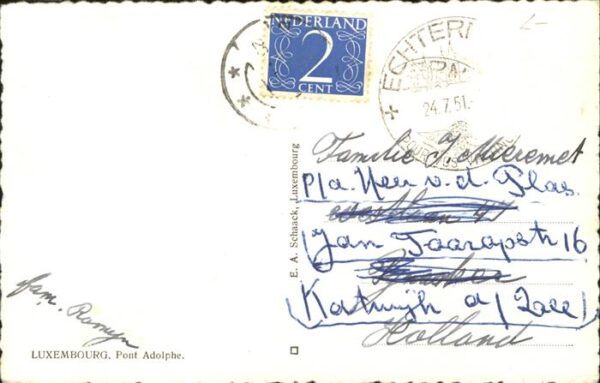 NEDERLAND
2
CENT
ECHTERN
24.7.51.
Familie J. Mieremet
p/a. Heer v.d. Plas.
(Jan Taarapstr 16
Katwijk a / Zee)
Holland
E. A. Schaack, Luxembourg
fam. Romyn
LUXEMBOURG, Pont Adolphe.